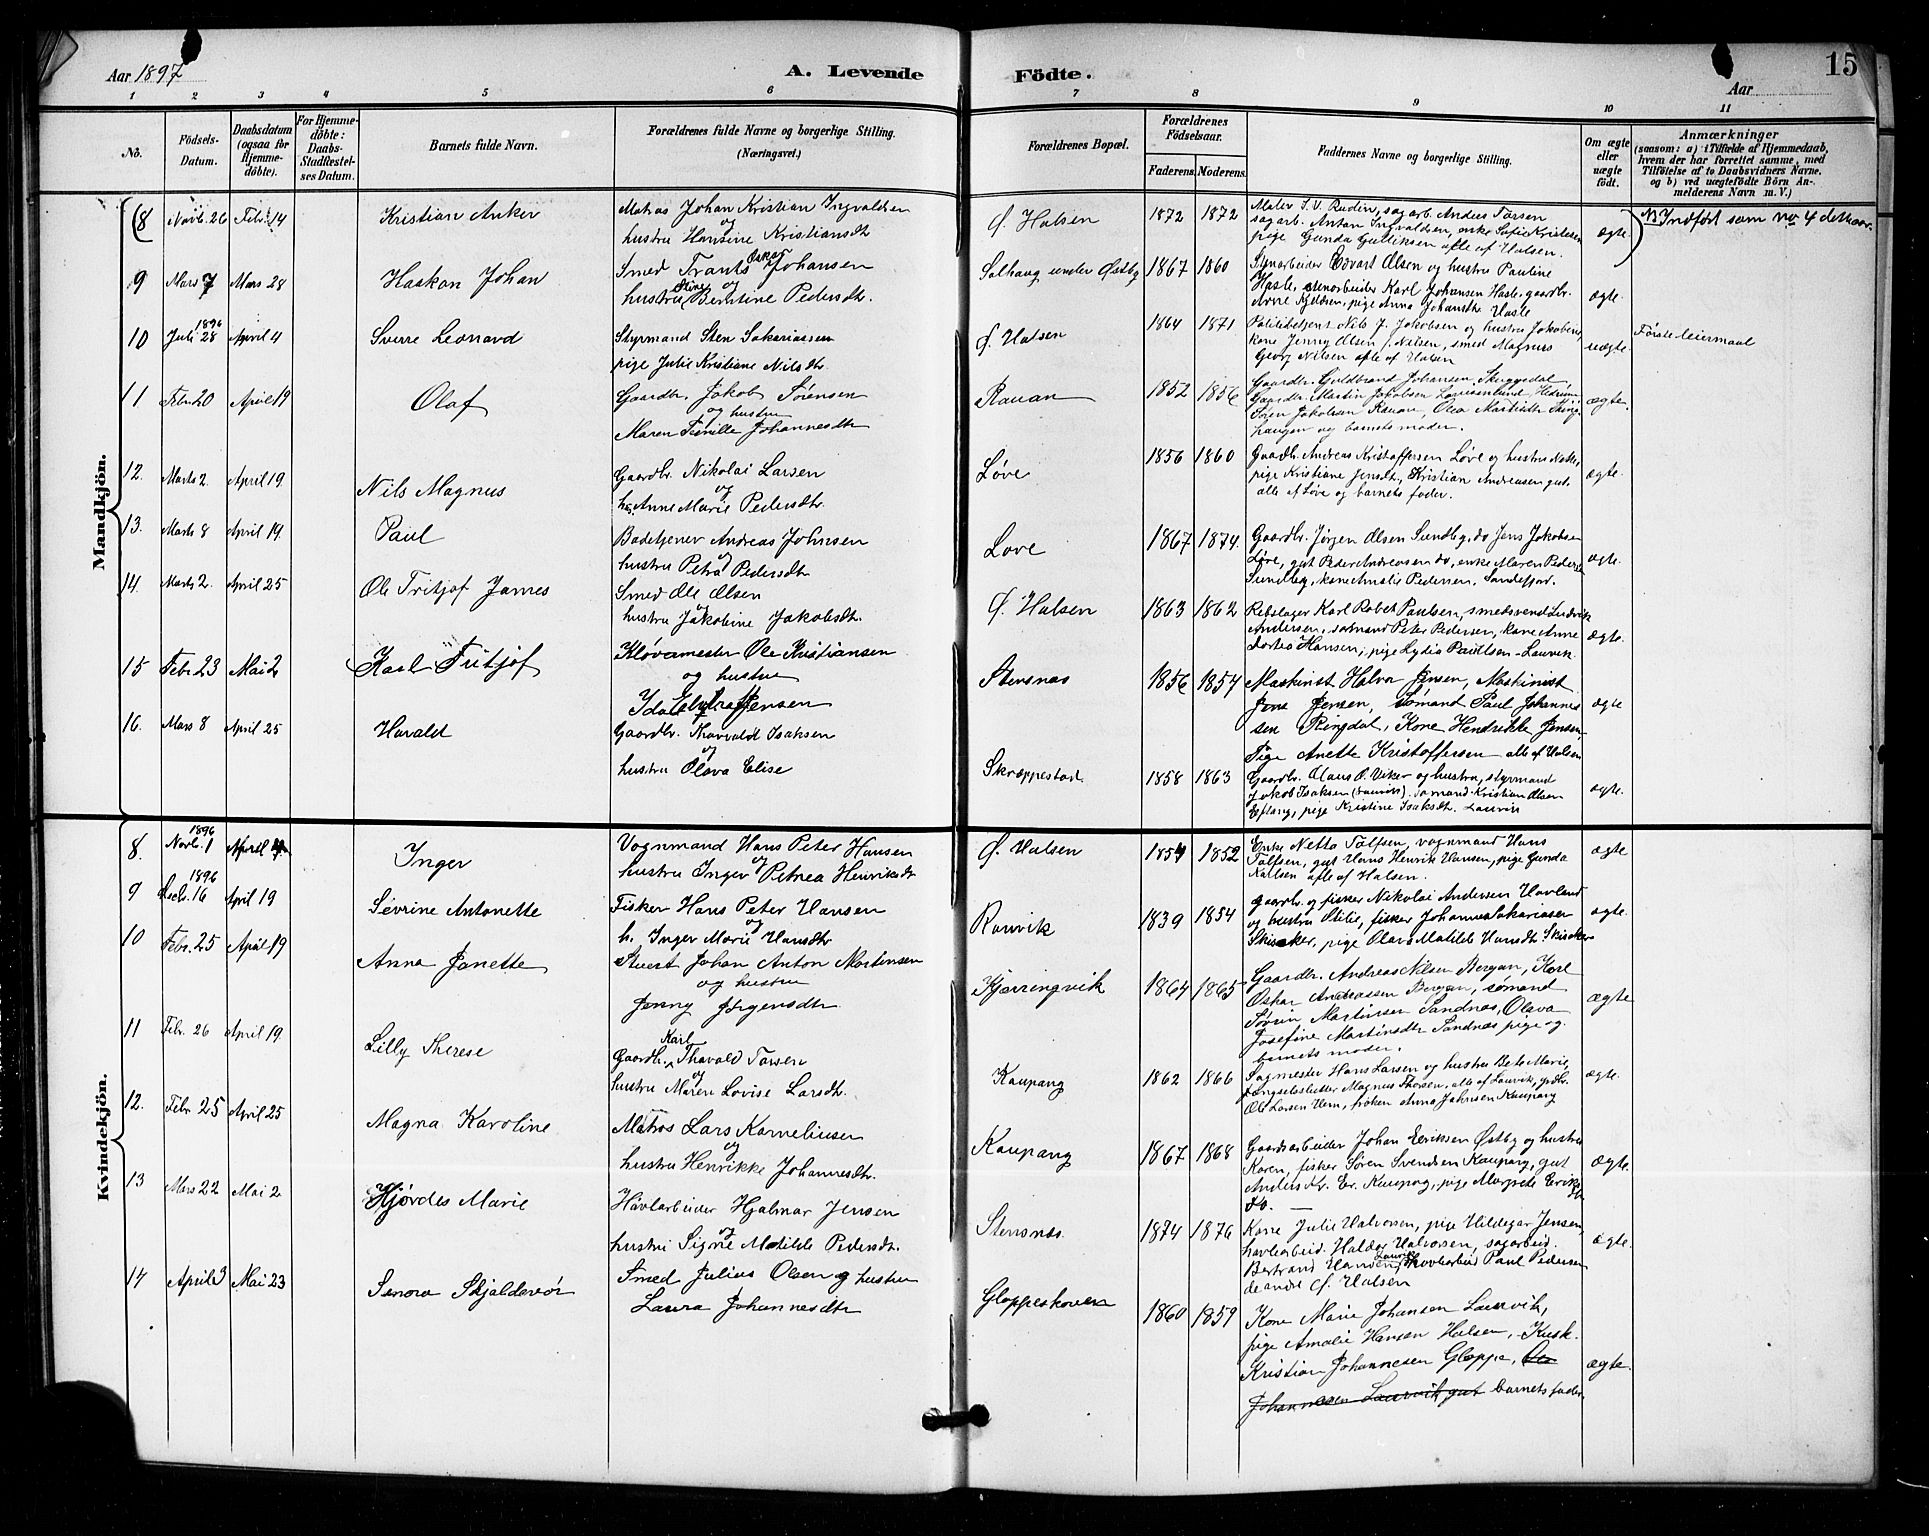 Aar 1897
A. Levende
Födte.
15
Aar
1 2 3 4 5 6 7 8 9 10 11
No.
Födsels-
Datum.
Daabsdatum
(ogsaa for
Hjemme-
döbte).
For Hjemme-
döbte:
Daabs-
Stadfæstel-
ses Datum.
Barnets fulde Navn.
Forældrenes fulde Navne og borgerlige Stilling.
(Næringsvei.)
Forældrenes Bopæl.
Forældrenes
Födselsaar.
Faderens. Moderens.
Faddernes Navne og borgerlige Stilling.
Om ægte
eller
uægte
födt.
Anmærkninger
(saasom: a) i Tilfælde af Hjemmedaab,
hvem der har forrettet samme, med
Tilföielse af to Daabsvidners Navne,
og b) ved uægtefödte Börn An-
melderens Navn m. V.)
Mandkjön.
(8 Novb. 26 Febr. 14 Kristian Anker
Matros Johan Kristian Ingvaldsen
og
hustru Hansine Kristiansdt
Ø. Halsen 1872 1872
Maler S. V. Rudin, sagarb. Anders Torsen
sagarb. Anton Ingvaldsen, enke Sofie Kristensen
pige Gunda Gulliksen alle af Halsen.
ægte.
NB Indført som no 4 dette aar.
9 Mars 7 Mars 28 Haakon Johan
Smed Frants Oskar Johansen
og
hustru Stine Berntine Pedersdt.
Solhaug under Østby 1867 1860
Stenarbeider Edvart Olsen og hustru Pauline
Hasle, stenarbeider Karl Johansen Hasle, gaardbr.
Arne Kjeldsen, pige Anna Johansdtr Hasle
ægte.
10 Juli 28 1896 April 4 Sverre Leonard
Styrmand Sten Sakariassen
pige Julie Kristiane Nilsdtr.
Ø. Halsen 1864 1871
Politibetjent Nils J. Jakobsen og hustru Jakobine,
kone Jenny Olsen, smed Magnus
Georg Nilsen alle af Halsen
uægte.
Første leiermaal
11 Febr. 20 April 19 Olaf
Gaardbr. Jakob Sørensen
og hustru
Maren Johannesdtr
Rauan 1852 1856
Gaardbr. Guldbrand Johansen Skiggesdal,
Gaardbr. Martin Jakobsen Louisenlund, Hedrum,
Søren Jakobsen Rauan, Olea Martisdtr
haugen og barnets moder.
ægte.
12. Marts 2 April 19. Nils Magnus
Gaardbr. Nikolai Larsen
og
h. Anne Marie Pedersdtr.
Løve 1856 1860
Gaardbr. Andreas Kristoffersen Løve og hustru
pige Kristiane Jensdt, Kristian Andreasen gut
alle af Løve og barnets fader.
ægte.
13. Marts 8 April 19. Paul
Badetjener Andreas Johnsen
og
hustru Petra Pedersdtr
Løve 1867 1874.
Gaardbr. Jørgen Olsen Sundby, do Jens Jakobsen
Løve, gut Peder Andreasen do, enke Maren Pedersen
Sundby, kone Amalie Pedersen, Sandefjord.
ægte.
14. Marts 2. April 25 Ole Fritjof James
Smed Ole Olsen
og
hustru Jakobine Jakobsdt.
Ø. Halsen 1863 1862
Rebslager Karl Robet Paulsen, smedsvend Ludvik
Andersen, sømand Peter Pedersen, kone Anne
Dortea Hansen, pige Lydia Paulsen – Laurvik.
ægte.
15 Febr. 23 Mai 2 Karl Fritjof
Kløvamester Ole Kristiansen
og hustru
Ida Jensen
Stensnæs 1856 1854
Maskinist Halvor Jensen, Maskinist
Jens Jensen, sømand Paul Johannes
sen Ringdal, Kone Hendrikke Jensen,
Pige Anette Kristoffersen alle af Halsen
ægte
16. Mars 8 April 25 Harald
Gaardbr. Thorvald Isaksen
og
hustru Olava Elise
Skræppestad 1858 1863
Gaardbr. Hans O. Viker og hustru, styrmand
Jakob Isaksen (Laurvik). Sømand Kristian Olsen
Eftang, pige Kristine Isaksdt. Laurvik
ægte.
Kvindekjön.
8. Novb. 1 1896 April Inger
Vognmand Hans Peter Hansen
og
hustru Inger Petrea Henriksdt
Ø. Halsen 1854 1852
Enke Netta Tolfsen, vognmand Hans
Tolfsen, gut Hans Henrik Hansen, pige Gunda
Karlsen alle af Halsen.
ægte
9 Decb. 16 1896 April 19 Sevrine Antonette
Fisker Hans Peter Hansen
og
h. Inger Marie Hansdtr
Rauvik 1839 1854
gaardbr. og fisker Nikolai Andersen Havland
og hustru Otilie, fisker Johannes Sakariasen
Skisaker, pige Olava Matilde Hansdt. Skisaker
ægte.
10 Febr. 25 April 19 Anna Janette
Stuert Johan Anton Mortensen
og hustru
Jenny Jørgensdtr.
Kjærringvik 1864 1865
Gaardbr. Andreas Nilsen Bergan, Karl
Oskar Andreassen Bergan, sømand
Søren Martinsen Sandnæs, Olava
Josefine Martinsdtr Sandnæs pige og
barnets moder.
ægte
11 Febr. 26 April 19. Lilly Therese
Gaardbr. Karl Thovald Torsen
og
hustru Maren Lovise Larsdtr.
Kaupang 1862 1866
Sagmester Hans Larsen og hustru Berte Marie,
fængselsslutter Magnus Thorsen, alle af Laurvik, grdbr.
Ole Larsen Vern, frøken Anna Johnsen Kaupang
ægte.
12. Febr. 25 April 25 Magna Karoline
Matros Lars Korneliusen
og
hustru Henrikke Johannesdtr.
Kaupang 1867 1868
Gaardsarbeider Johan Eeriksen Østby og hustru
Karen, fisker Søren Svendsen Kaupang, gut
Anders Kr. Er. Kaupang, pige Margrete Eriksdtr
do.
ægte.
13 Mars 22 Mai 2 Hjørdes Marie
Høvlarbeider Hjalmar Jensen
og
hustru Signe Matilde Pedersdt.
Stensnæs. 1874 1876
Kone Julie Halvorsen, pige Hildegar Jensen,
høvlearbeid. Haldor Halvorsen, sagarbeid.
Bertrand Hansen Laurvik, høvlearbeid Paul Pedersen
de andre Ø. Halsen
ægte.
14 April 3 Mai 23 Senora Skjoldevør
Smed Julius Olsen og hustru
Laura Johannesdtr
Gloppeskoven 1860 1859
Kone Marie Johansen Laurvik,
pige Amalie Hansen Halsen, Kusk
Kristian Johannesen Gloppe,
Johannesen Laurvik gut barnets fader.
ægte.